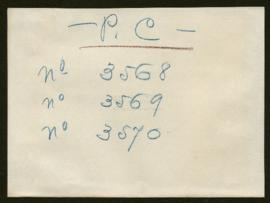 - P. C -
nº 3568
nº 3569
nº 3570